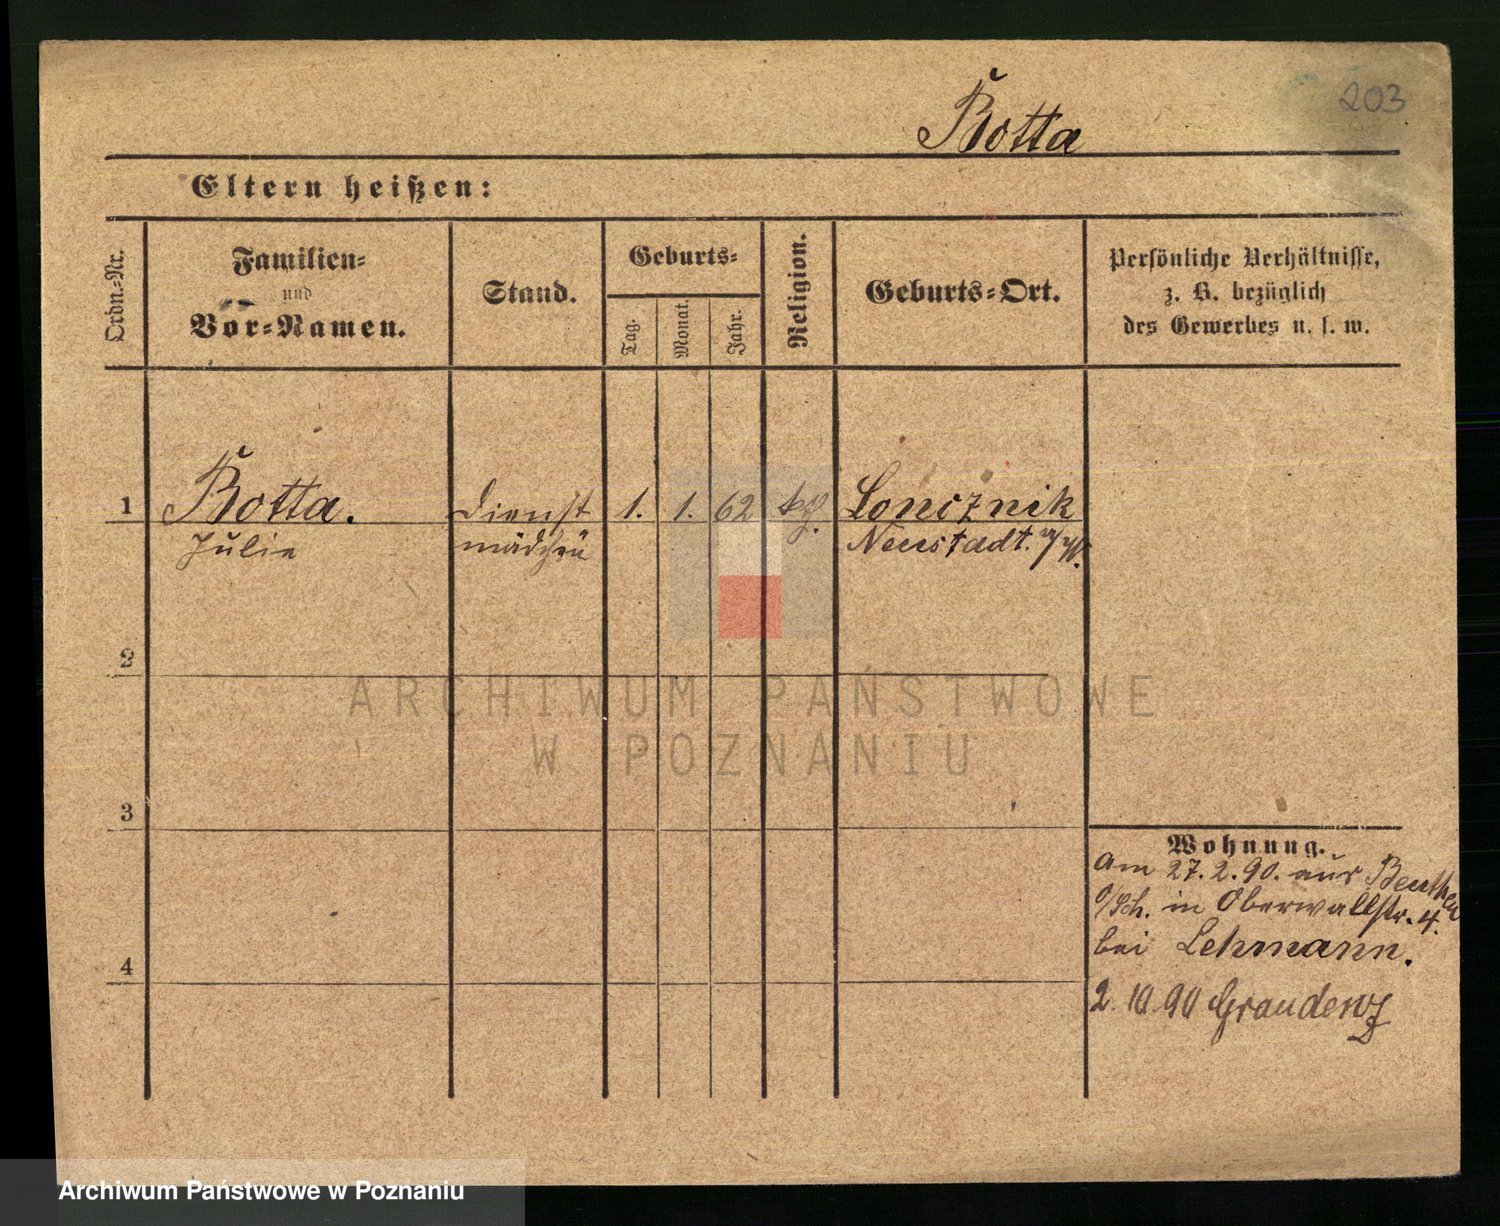 203
Botta
Eltern heißen:
Ordn.-Nr.
Familien-
und
Vor-Namen.
Stand.
Geburts-
Tag.
Monat.
Jahr.
Religion.
Geburts-Ort.
Persönliche Verhältnisse,
z. B. bezüglich
des Gewerbes u. s. w.
1 Botta. Dienst 1. 1. 62 Loncznik
Julie mädchen Neustadt.
2
3
4
Wohnung.
Am 27.2.90. aus Beuthen
o/Sch. in Oberwallstr. 4.
bei Lehmann.
2.10.90 Graudenz
ARCHIWUM PAŃSTWOWE
W POZNANIU
Archiwum Państwowe w Poznaniu